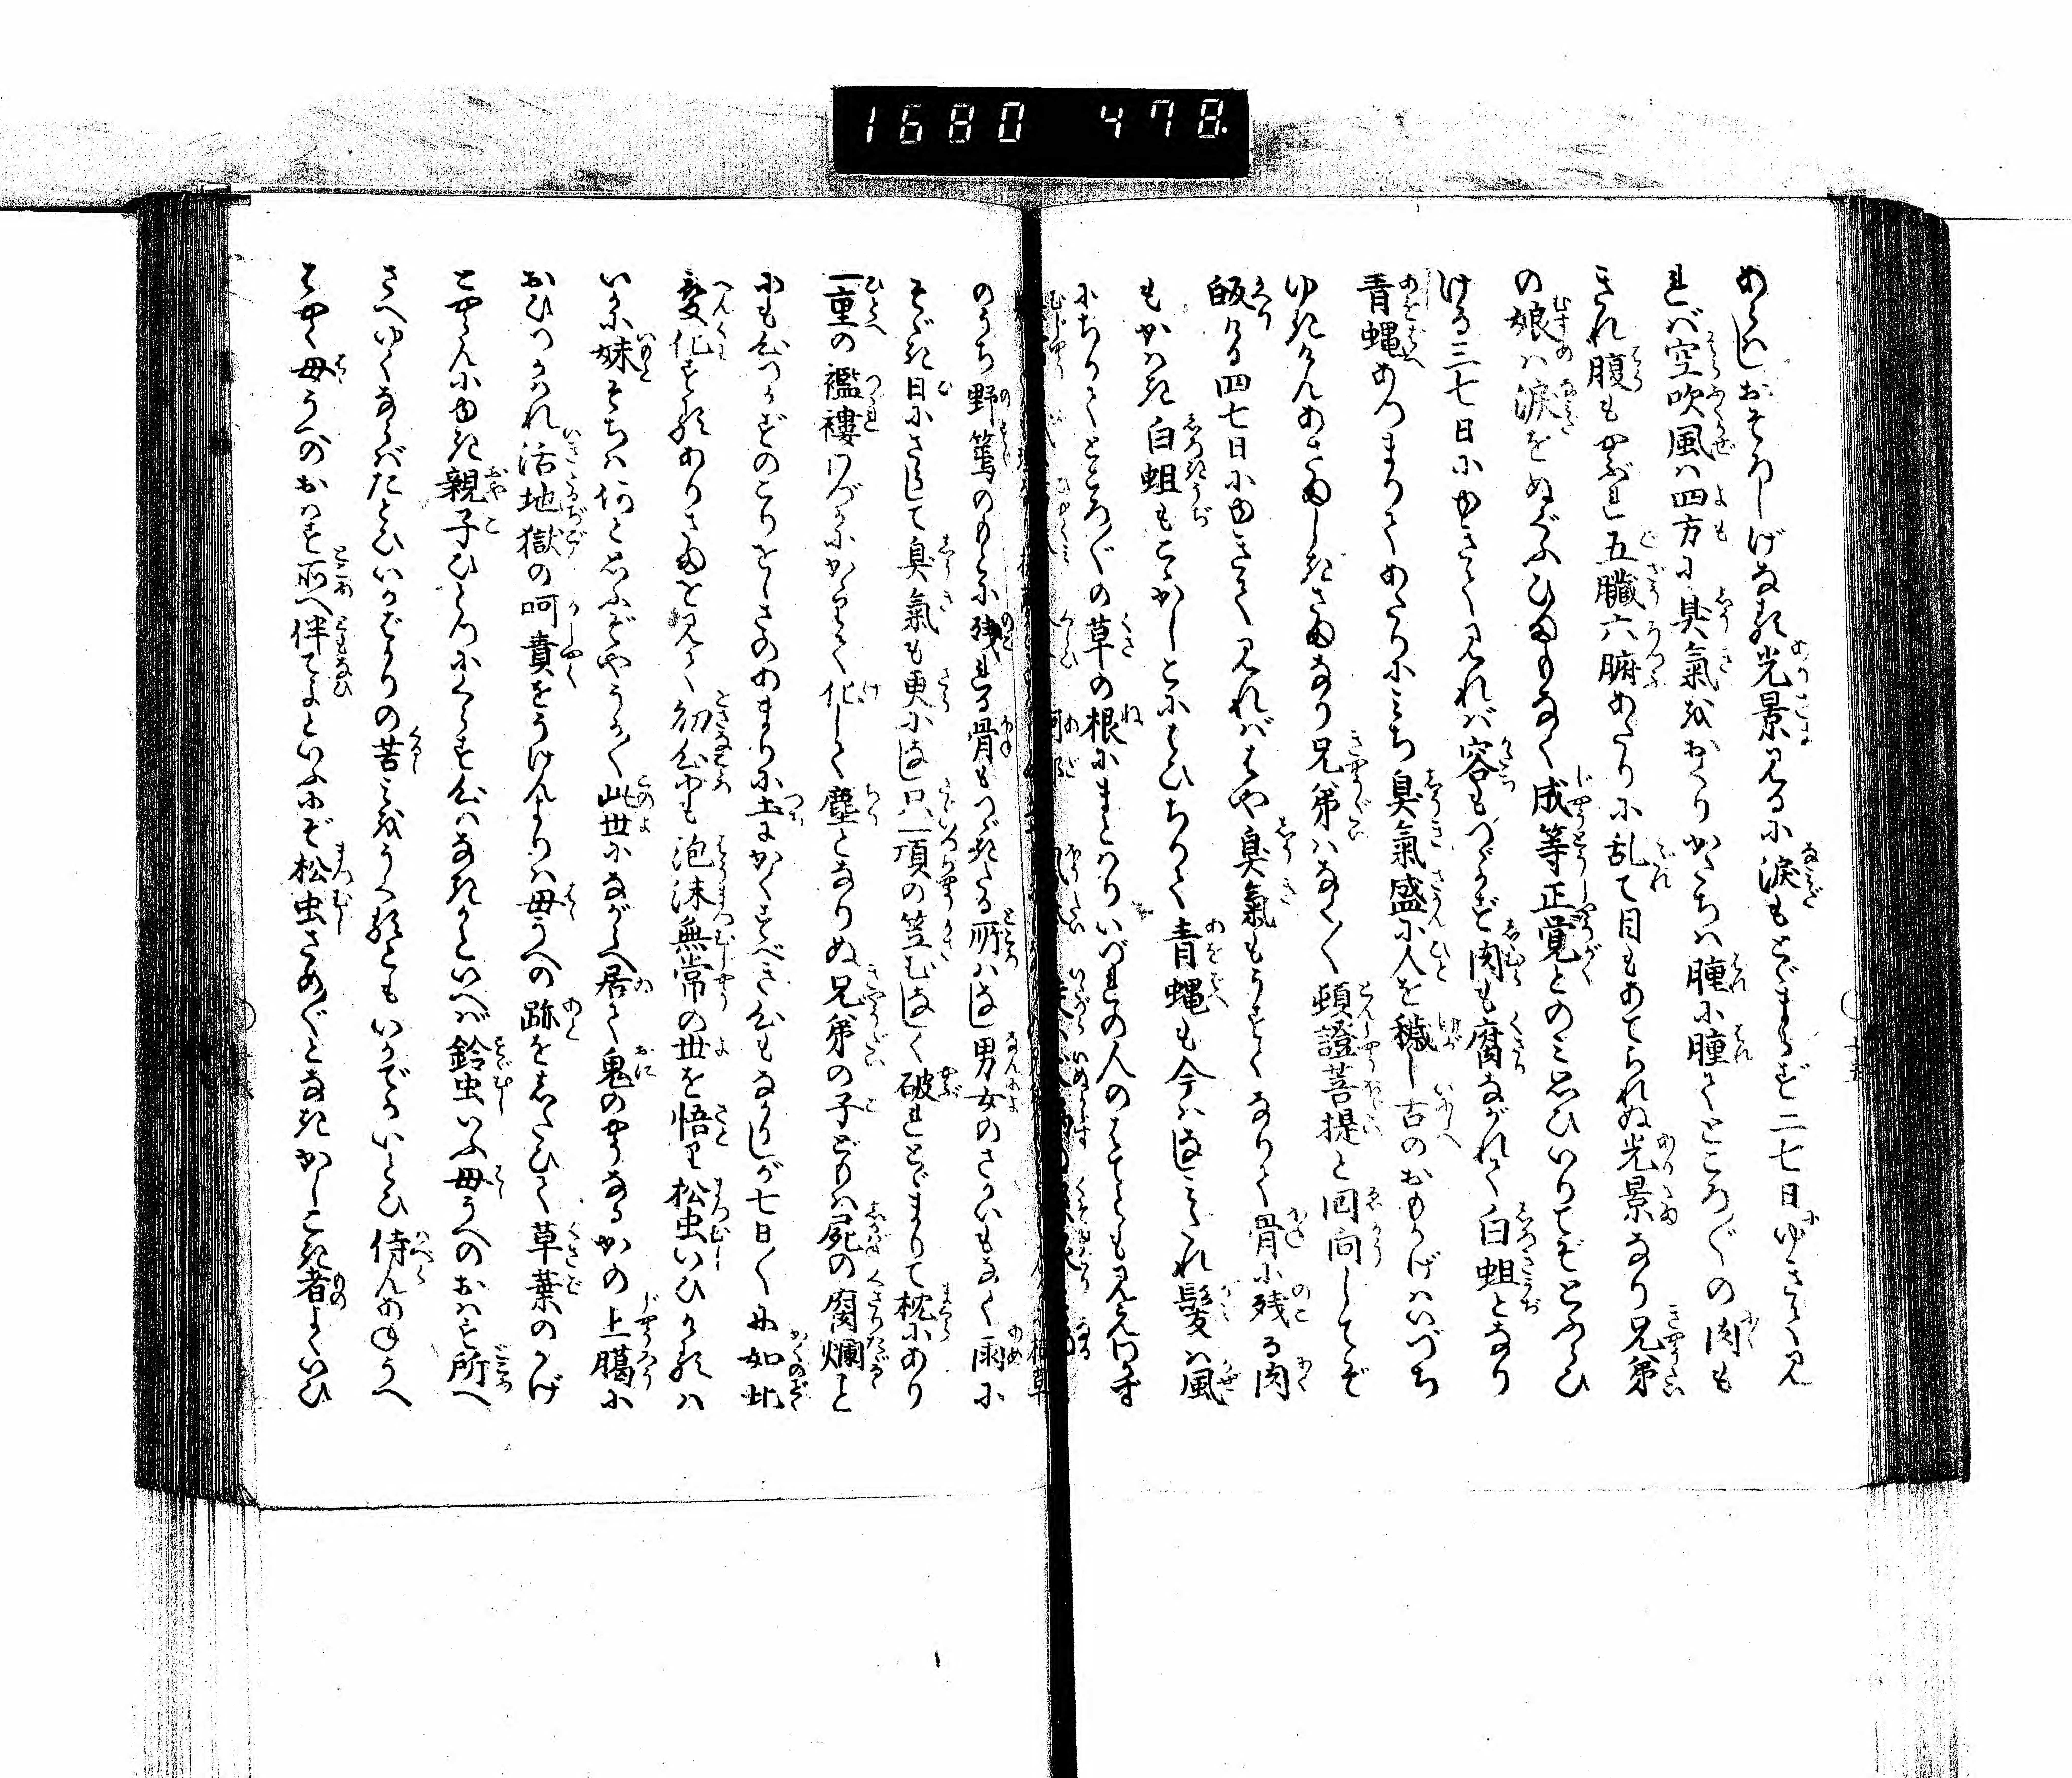 1680 478.
めらはしおそろしげなる光景見るに涙もとゞまらず二七日ゆきて見
れば空吹風は四方に臭氣をおくりかたちは腫に腫てところ〴〵の肉も
きれ腹もやぶれ五臓六腑あたりに乱て目もあてられぬ光景なり兄弟
の娘は涙をぬぐふひまもなく成等正覚とのみ思ひいりてぞとふらひ
ける三七日にゆきて見れば容もつゞかず肉も腐ながれて白蛆となり
青蝿あつまりてあたりにみち臭氣盛に人を穢し古のおもかげはいづち
ゆきけんあさましきさまなり兄弟はなく〳〵頓證菩提と回向してぞ
皈ける四七日にゆきて見ればはや臭氣もうすくなりて骨に残る肉
もかはき白蛆もこゝかしこにはひちりて青蝿も今はまれ髪は風
にちりてところ〴〵の草の根にまとはりいづれの人のはてとも見えわかず
のうち野篶のもとに残れる骨もつゞきたる所はまれ男女のさかいもなく雨に
そゝぎ日にさらして臭氣も更になし只一頂の笠もなく破れとゞまりて枕にあり
一重の襤褸わづかにからみて化して塵となりぬ兄弟の子どもは屍の腐爛と
にも心つかずのこりをしさのあまりに土にかくすべき心もなかりしが七日〳〵に如此
変化する有さまを見て幼心にも泡沫無常の世を悟り松虫いひけるは
いかに妹そちは何と思ふぞやうか〳〵此世にながらへ居て鬼のやうなるかの上臈に
おひつかはれ活地獄の呵責をうけんよりは母うへの跡をしたひて草葉のかげ
とやらんにゆき親子ひとつにくらす心はなきかといへば鈴虫いふ母うへのおはす所へ
さへゆくならばたとひいかばかりの苦みをうくるともいかでかいとひ侍らんあねうへ
はやく母うへのおはす所へ伴てよといふにぞ松虫さめ〴〵となきかしこき者よくいひ